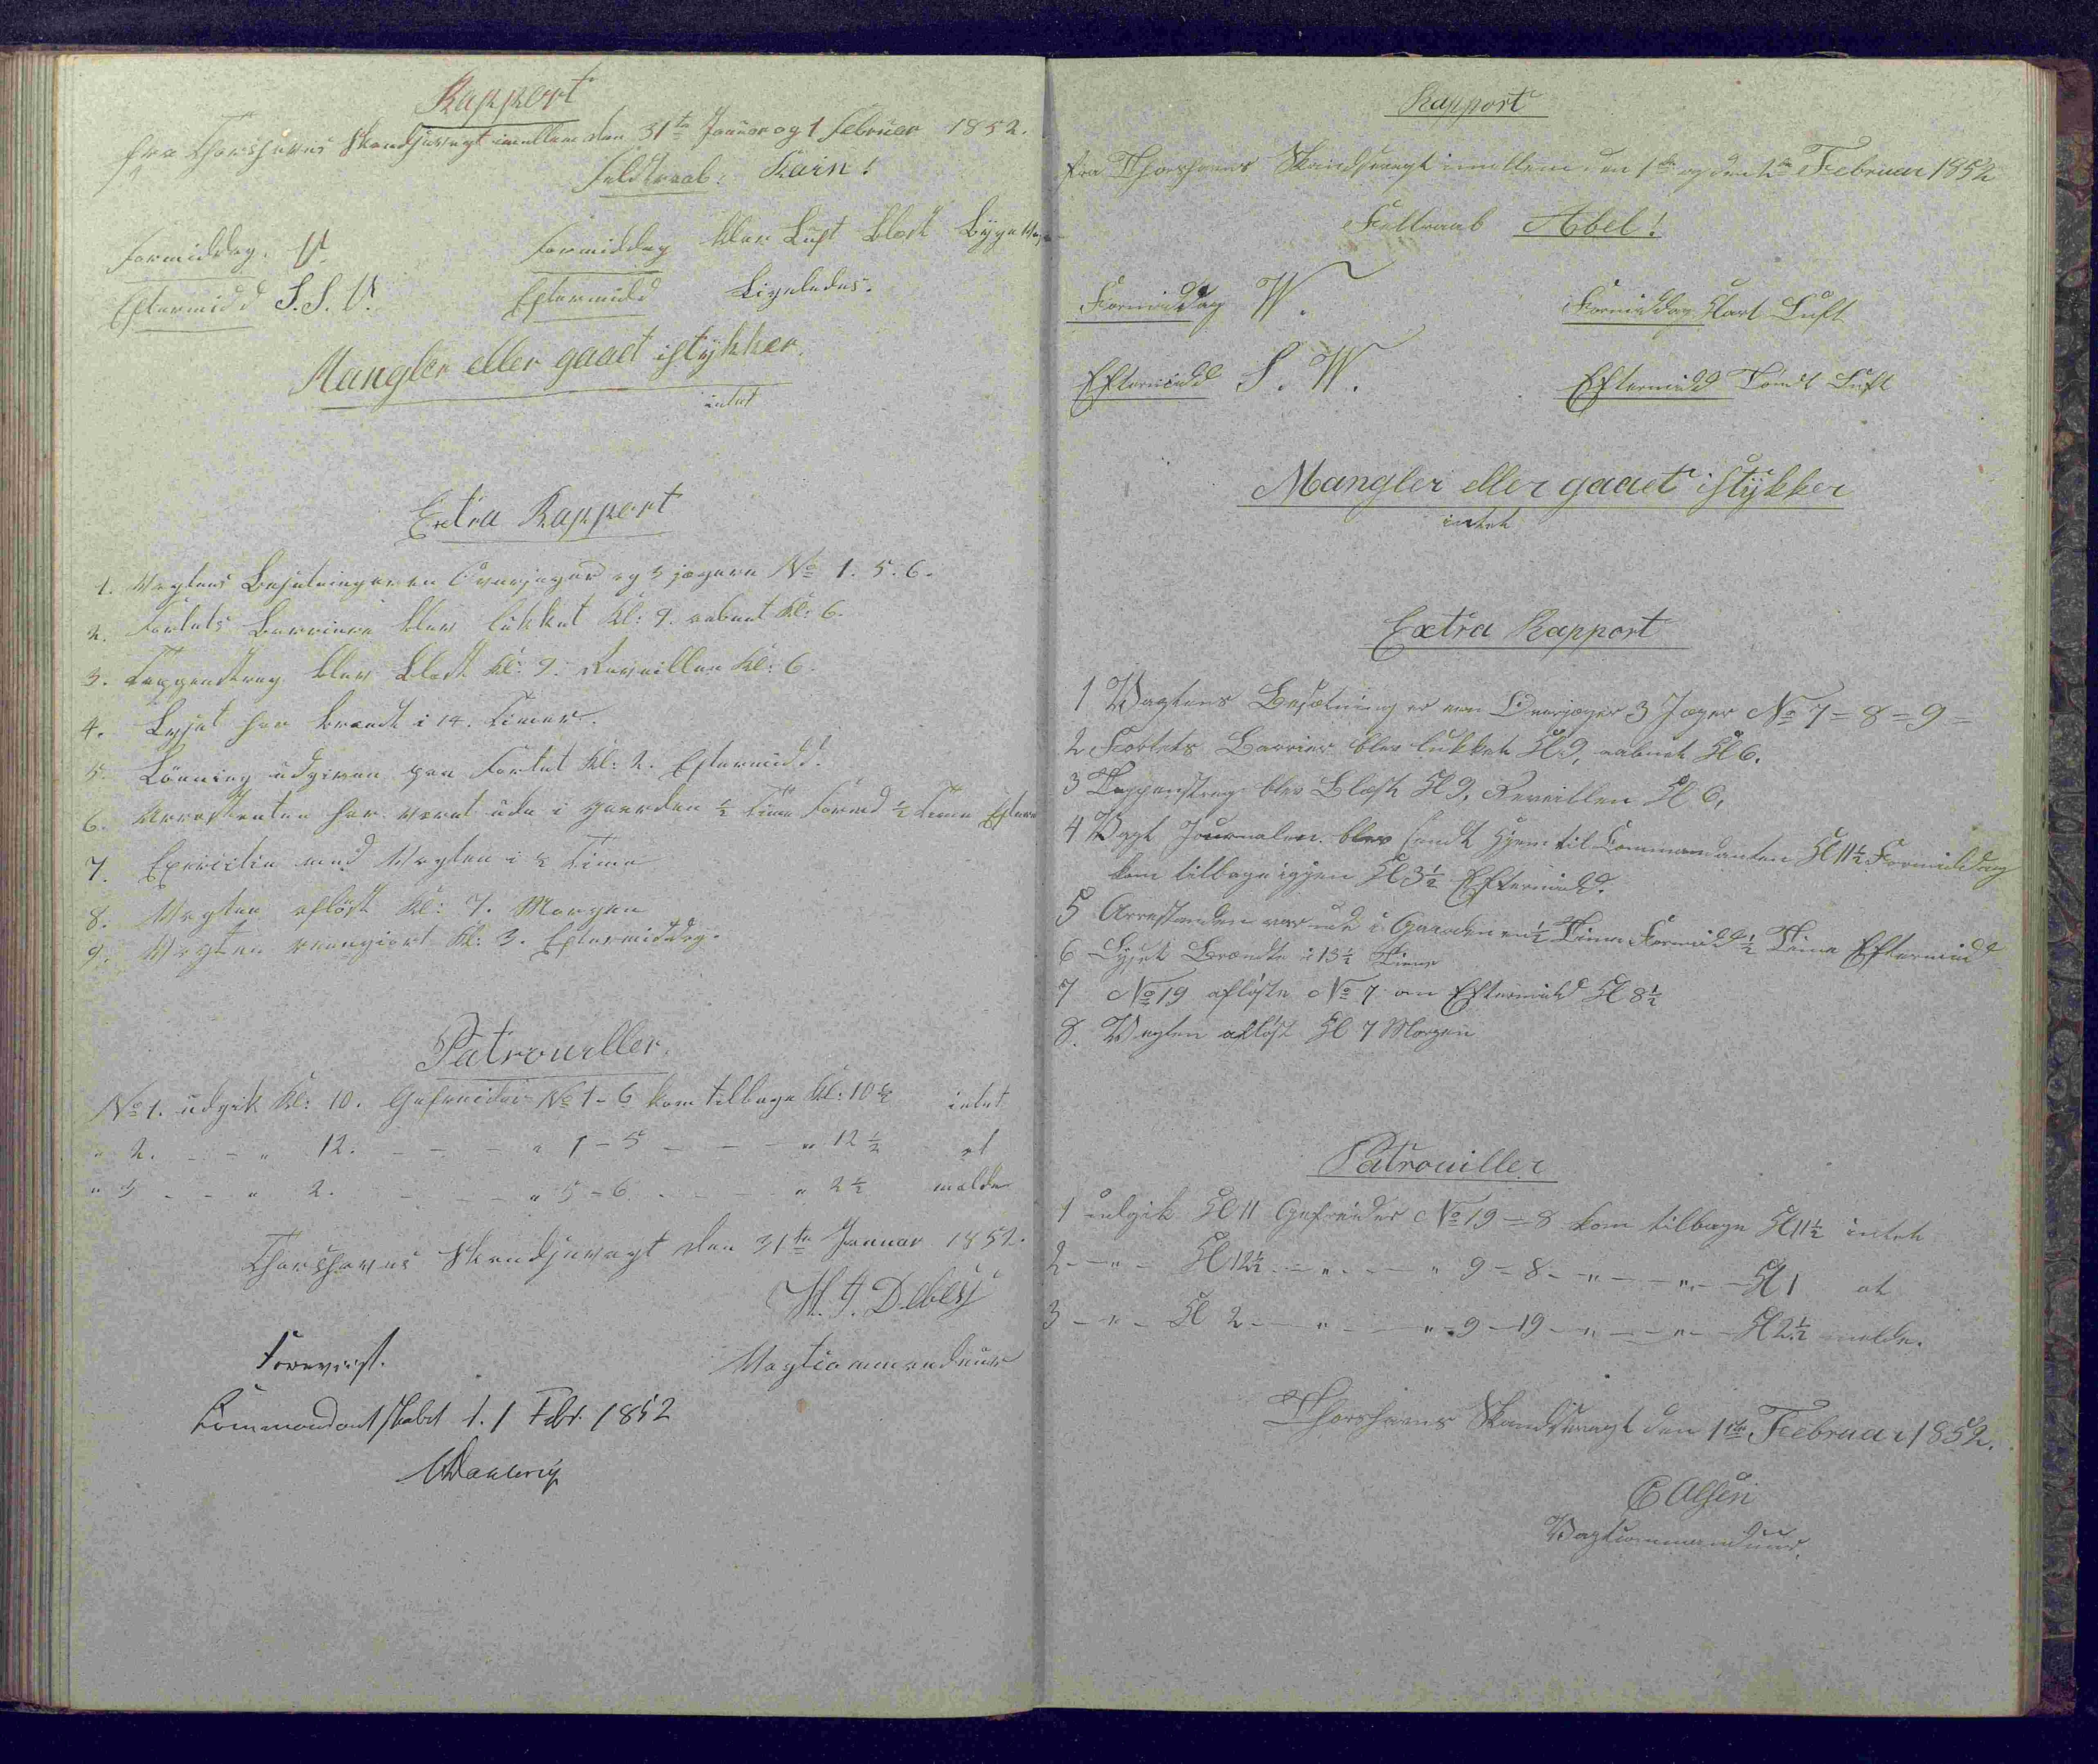 Rapport
fra Thorshavns Skandsevagt imellem den 31te Januar og 1 Februar 1852.
Feldtraab: Kain!
Formiddag: V. Formiddag klar Luft Blæst Byge
Eftermidd S.S.V. Eftermidd Ligeledes.
Mangler eller gaaet istykker
intet
Extra Rapport
1. Vagtens Besætning er en Overjæger og 3 jægere No 1. 5. 6.
2. Fortets Barriere blev lukket Kl: 9. aabnet Kl: 6.
3. Tappenstreg blev Blæst Kl: 9. Reveillen Kl: 6.
4. Lyset har brændt i 14. Timer.
5. Lönning udgiven paa Fortet Kl: 2. Eftermidd.
6. Arrestanten har været ude i Gaarden ½ Time Formd ½ Time Efterm
7. Exercitie med Vagten i ½ Time
8. Vagten aflöst Kl: 7. Morgen
9. Vagten rangiert Kl: 3. Eftermiddag.
Patrouiller
No 1. udgik Kl: 10. Gefreider No 1-6 kom tilbage Kl: 10½ intet
" 2. - - " 12. - - - " 1-5 - - - " 12½ at
" 3 - - " 2. - - - " 5-6 - - - " 2½ melde
Thorshavns Skandsevagt den 31te Januar 1852.
H. J. Debess
Vagtcommandeur
Forevist.
Kommandantskabet d. 1 Febr. 1852
CDahlerup
Rapport
fra Thorshavns Skandsevagt imellem den 1te og den 2den Februar 1852
Feltraab Abel!
Formiddag W. Formiddag Klart Luft
Eftermidd S. W. Eftermidd Luft
Mangler eller gaaet istykker
intet
Extra Rapport
1 Vagtens Besætning er een Overjæger 3 Jæger No 7=8=9=
2 Fortets Barrier blev lukket Kl 9, aabnet Kl 6.
3 Tappenstreg blev Blæst Kl 9, Reveillen Kl 6,
4 Vagt Journalen blev sendt Hjem til Commandanten Kl 11½ Formiddag
kom tilbage igjen Kl 3½ Eftermidd.
5 Arrestanden var ude i Gaarden en ½ Time Formidd ½ Time Eftermidd
6 Lyset Brændte i 13½ Time
7 No 19 aflöste No 7 om Eftermidd Kl 8½
8. Vagten aflöst Kl 7 Morgen
Patrouiller
1 udgik Kl 11 Gefreider No 19=8 kom tilbage Kl 11½ intet
2 - " - Kl 12½ - " - - " 9=8 - " - - " - Kl 1 at
3 - " - Kl 2 - " - - " 9-19 - " - - " - Kl 2½ melde.
Thorshavns Skandsevagt den 1ste Februar 1852.
C Olsen
Vagtcommandeur.